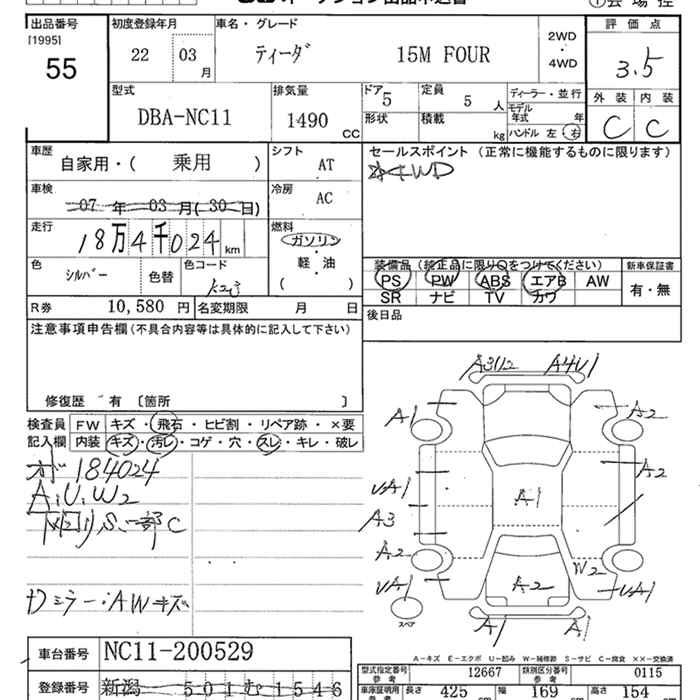 出品番号 初度登録年月 車名・グレード 評価点
[1995] 55 22 03月 ティーダ 15M FOUR 2WD・4WD 3.5
外装 内装
C C
型式 DBA-NC11 排気量 1490 cc ドア 5 定員 5人 ディーラー・並行
形状 積載 kg モデル年式 年
ハンドル 左 右
車歴 自家用・( 乗用 ) シフト AT セールスポイント (正常に機能するものに限ります)
4WD
車検 07年03月(30日) 冷房 AC
走行 18万4千024 km 燃料 ガソリン
軽・油
( )
色 シルバー 色替 色コード K23
装備品 (純正品に限り○をつけてください) 新車保証書
PS PW ABS エアB AW 有・無
SR ナビ TV カワ
R券 10,580 円 名変期限 月 日 後日品
注意事項申告欄 (不具合内容等は具体的に記入して下さい)
修復歴 有 〔箇所 〕
検査員 FW キズ・飛石・ヒビ割・リペア跡・×要
記入欄 内装 キズ・汚レ・コゲ・穴・スレ・キレ・破レ
184024
A.U.W2
S.一部C
ミラー・AWキズ
A3U2 A4U1
A1 A2
A2
UA1 A1
A3
A2 W2
UA1 A2 UA1
スペア
A1 A1
車台番号 NC11-200529
登録番号 新潟 501む1546
A-キズ E-エクボ U-凹み W-補修跡 S-サビ C-腐食 ××-交換済
型式指定番号 参考 12667 類別区分番号 参考 0115
車庫証明用 長さ 425 幅 169 高さ 154